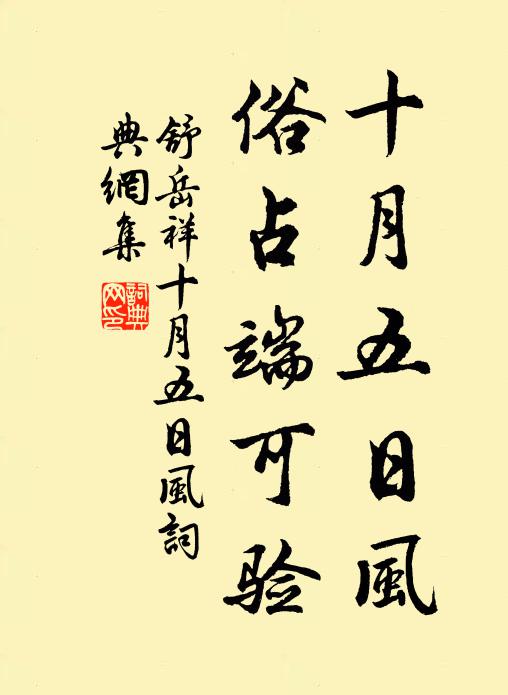 十月五日風
俗占端可验
舒岳祥十月五日風詞
典網集
詞典
网印